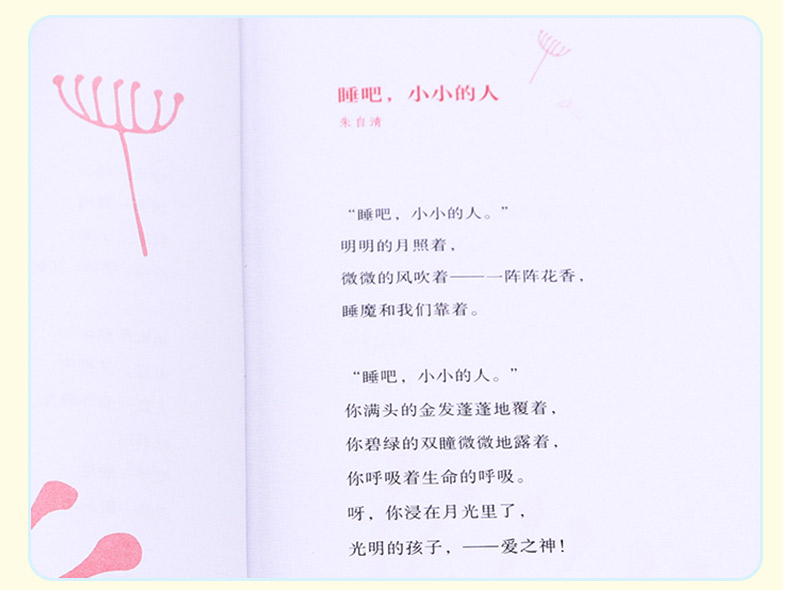 睡吧，小小的人
朱自清
“睡吧，小小的人。”
明明的月照着，
微微的风吹着——一阵阵花香，
睡魔和我们靠着。
“睡吧，小小的人。”
你满头的金发蓬蓬地覆着，
你碧绿的双瞳微微地露着，
你呼吸着生命的呼吸。
呀，你浸在月光里了，
光明的孩子，——爱之神！